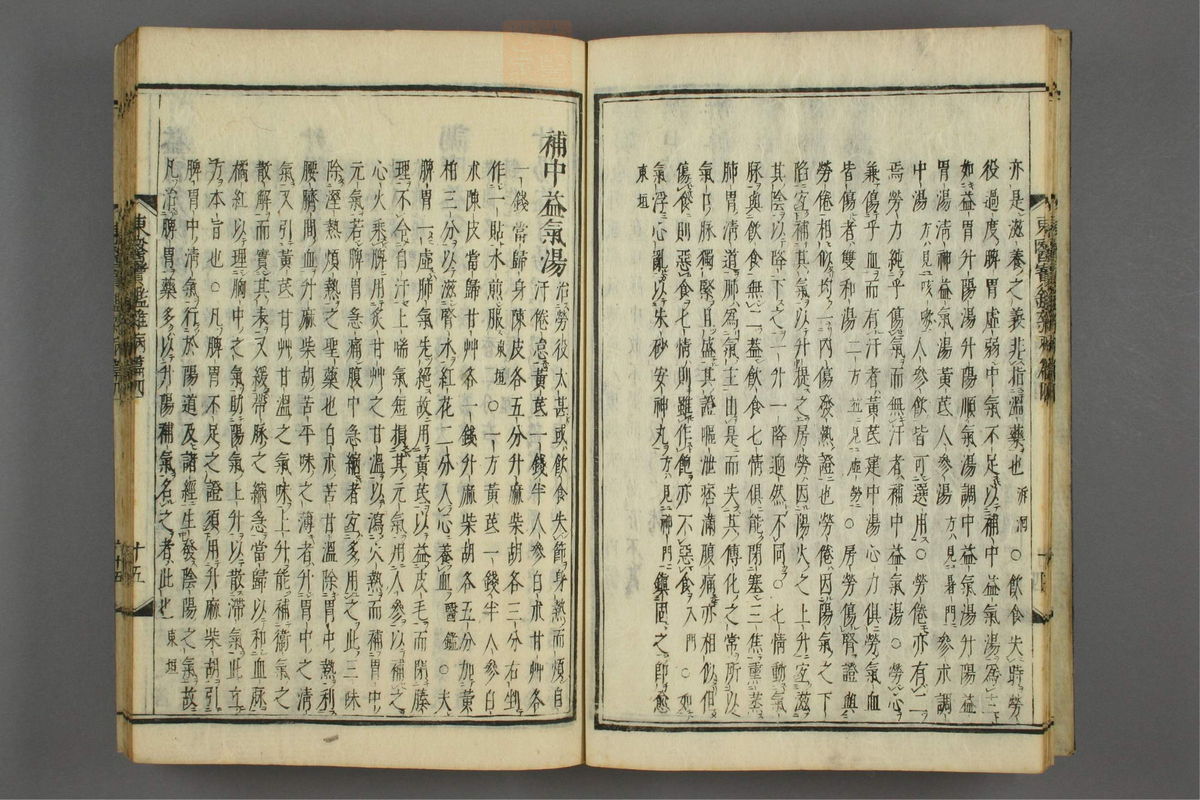 亦是滋養之義非指溫藥也 泝洄 ○飮食失時勞
役過度脾胃虛弱中氣不足以補中益氣湯爲主
如益胃升陽湯升陽順氣湯調中益氣湯升陽益
胃湯淸神益氣湯黃芪人參湯 方見暑門 參朮調
中湯 方見咳嗽 人參飮皆可選用○勞倦亦有二
焉勞力純乎傷氣而無汗者補中益氣湯○勞心
兼傷乎血而有汗者黃芪建中湯心力俱勞氣血
皆傷者雙和湯二方 並見虛勞 ○房勞傷腎證與
勞倦相似均一內傷發熱證也勞倦因陽氣之下
陷宜補其氣以升提之房勞因陽火之上升宜滋
其陰以降下之一升一降迥然不同○七情動氣
脉與飮食無二盖飮食七情俱能閉塞三焦熏蒸
肺胃淸道肺爲氣主由是而失其傳化之常所以
氣口脉獨緊且盛其證嘔泄痞滿腹痛亦相似但
傷食則惡食七情則雖作飽亦不惡食 入門 ○如
氣浮心亂以朱砂安神丸 方見神門 鎭固之卽愈
東垣
補中益氣湯 治勞役太甚或飮食失節身熱而煩自
汗倦怠黃芪一錢半人參白朮甘艸各
一錢當歸身陳皮各五分升麻柴胡各三分右剉
作一貼水煎服 東垣 ○一方黃芪一錢半人參白
朮陳皮當歸甘艸各一錢升麻柴胡各五分加黃
柏三分以滋腎水紅花二分入心養血 醫鑑 ○夫
脾胃一虛肺氣先絕故用黃芪以益皮毛而閉腠
理不令自汗上喘氣短損其元氣用人參以補之
心火乘脾用炙甘艸之甘溫以瀉火熱而補胃中
元氣若脾胃急痛腹中急縮者宜多用之此三味
除濕熱煩熱之聖藥也白朮苦甘溫除胃中熱利
腰臍間血升麻柴胡苦平味之薄者升胃中之淸
氣又引黃芪甘艸甘溫之氣味上升能補衛氣之
散解而實其表又緩帶脉之縮急當歸以和血脉
橘紅以理胸中之氣助陽氣上升以散滯氣此立
方本旨也○凡脾胃不足之證須用升麻柴胡引
脾胃中淸氣行於陽道及諸經生發陰陽之氣故
凡治脾胃藥多以升陽補氣名之者此也 東垣
東醫寶鑑雜病篇四
十五